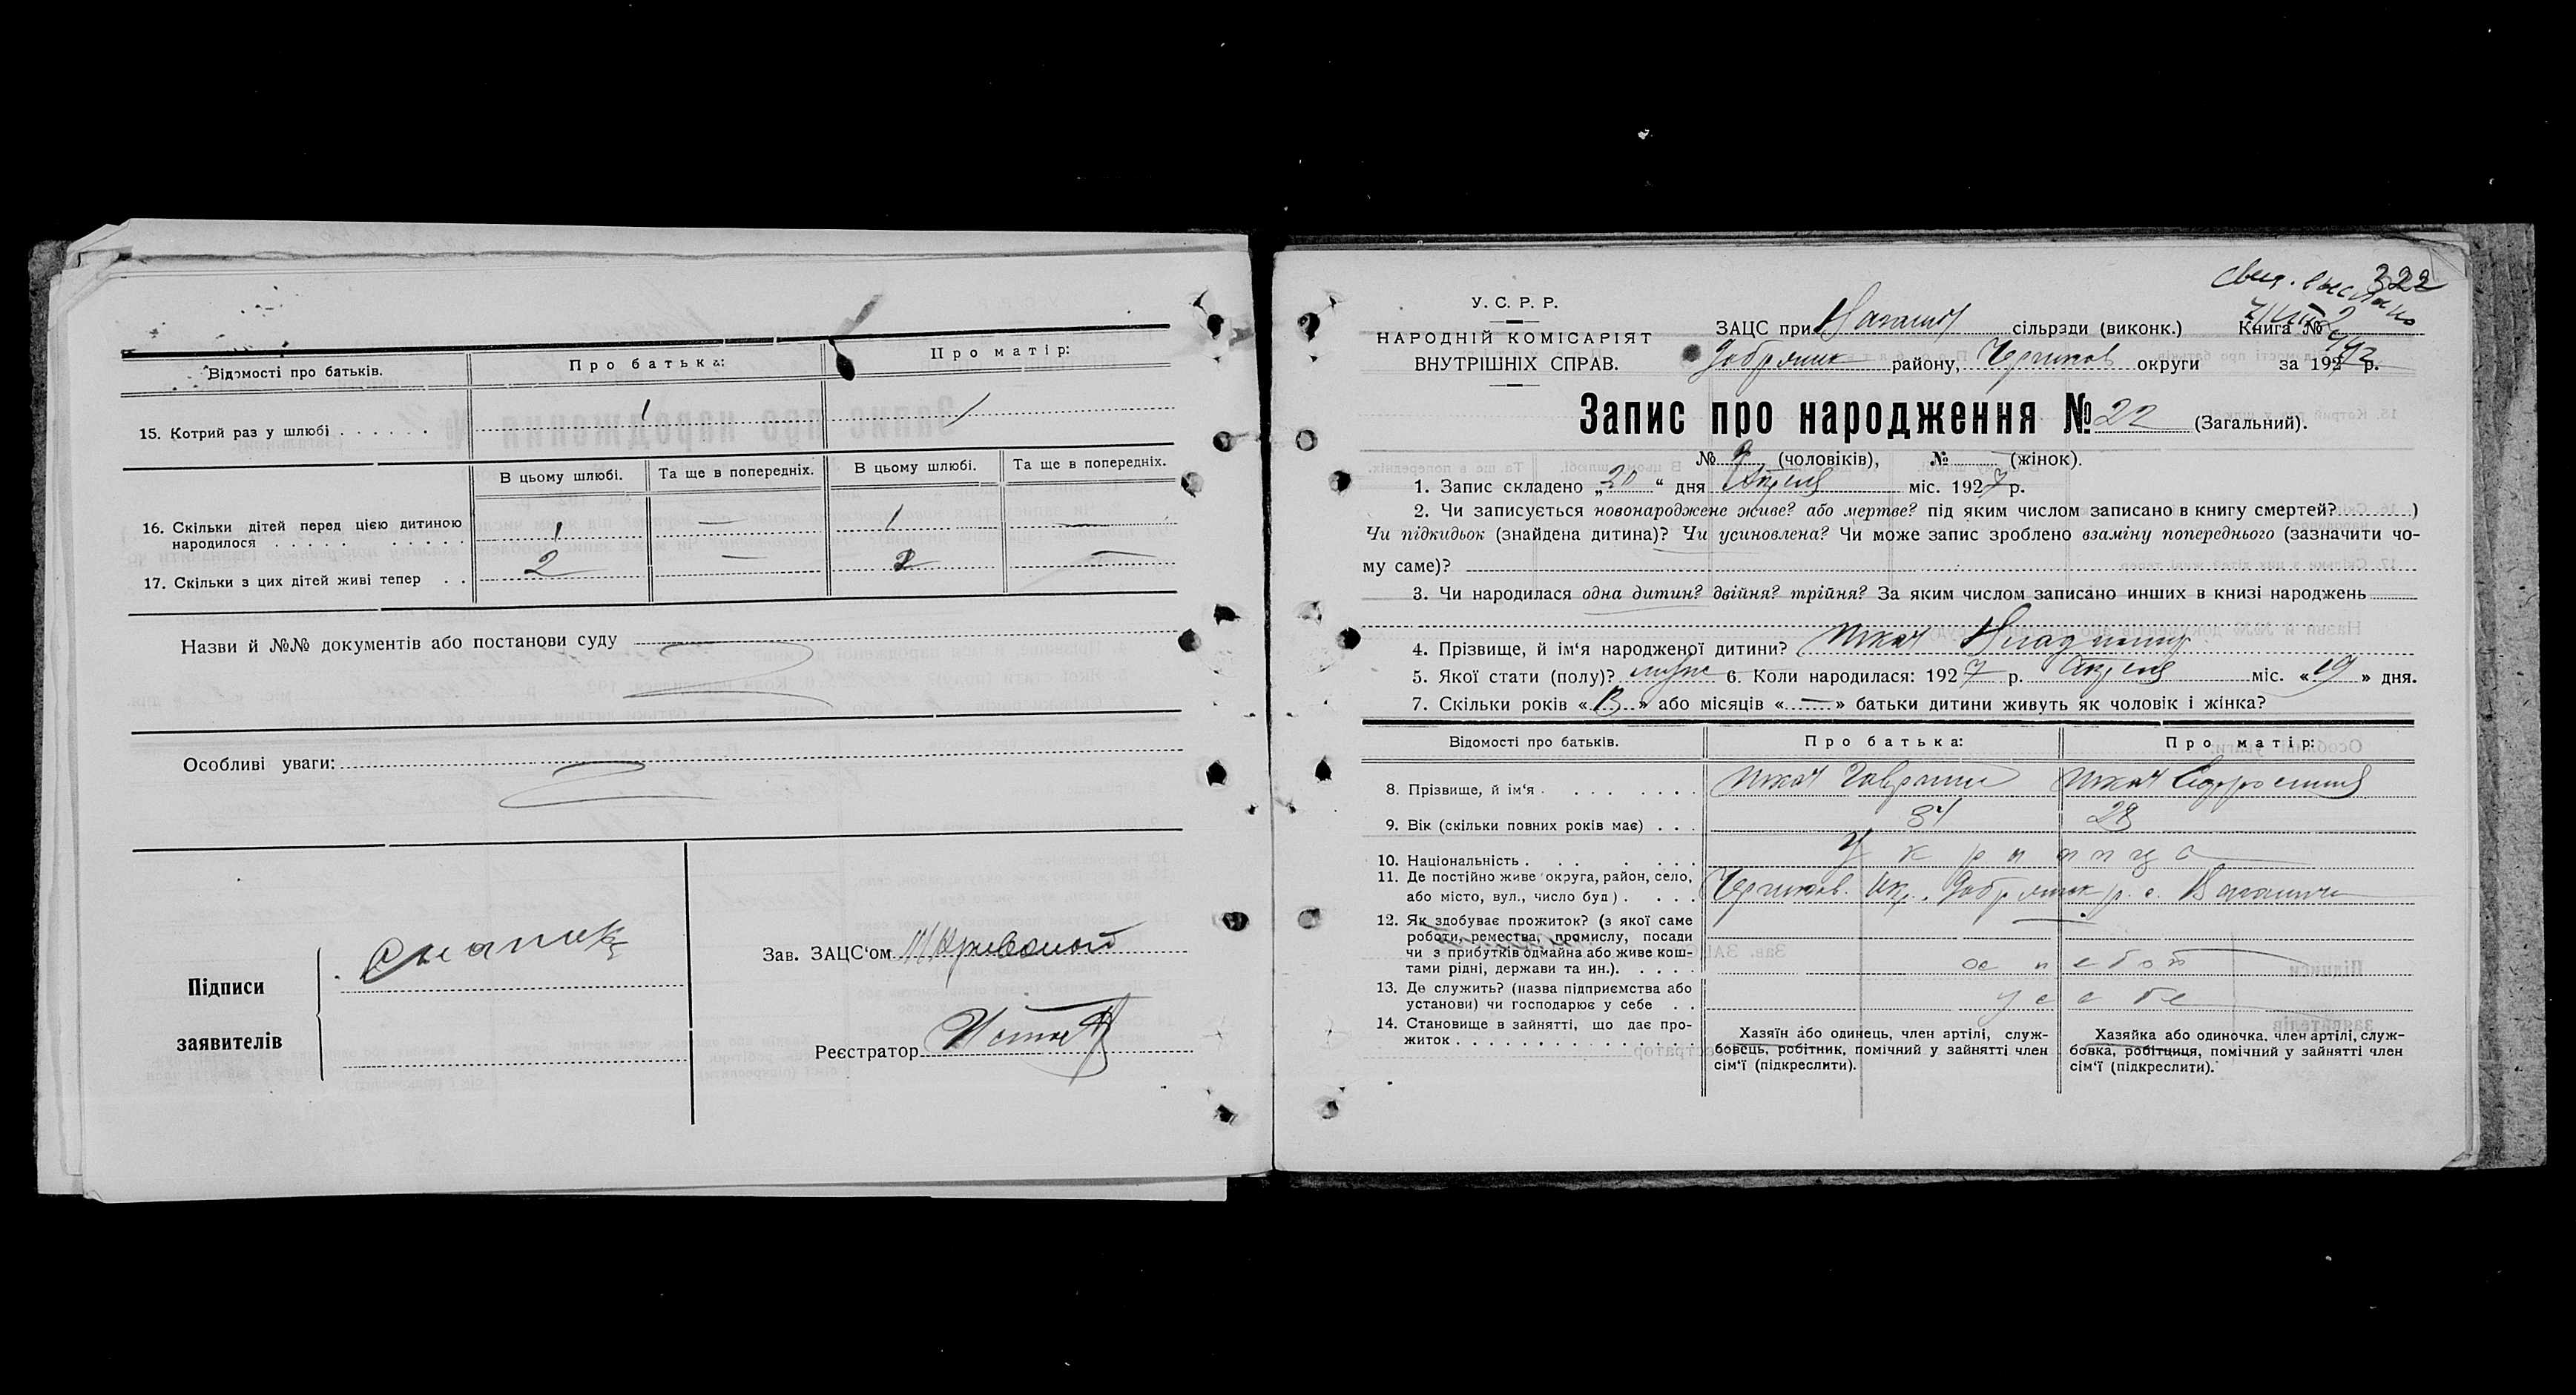 Відомості про батьків.
Про батька:
Про матір:
15. Котрий раз у шлюбі . . . . . .
1
1
В цьому шлюбі.
Та ще в попередніх.
В цьому шлюбі.
Та ще в попередніх.
16. Скільки дітей перед цією дитиною
народилося . . . . . . . . . .
1 — 1 —
17. Скільки з цих дітей живі тепер . .
2 — 2 —
Назви й №№ документів або постанови суду
Особливі уваги:
Підписи
заявителів
Зав. ЗАЦС‘ом
Реєстратор
322
У. С. Р. Р.
НАРОДНІЙ КОМІСАРІЯТ
ВНУТРІШНІХ СПРАВ.
ЗАЦС при сільрзди (виконк.) Книга №
Добряник району, Чернигов округи за 1927 р.
Запис про народження № 22 (Загальний).
№ (чоловіків), № (жінок).
1. Запис складено „20“ дня Апреля міс. 1927 р.
2. Чи записується новонароджене живе? або мертве? під яким числом записано в книгу смертей? )
Чи підкидьок (знайдена дитина)? Чи усиновлена? Чи може запис зроблено взаміну попереднього (зазначити чо-
му саме)?
3. Чи народилася одна дитин? двійня? трійня? За яким числом записано инших в книзі народжень
4. Прізвище, й ім‘я народженої дитини? Ткач Владимир
5. Якої стати (полу)? муж 6. Коли народилася: 1927 р. Апреля міс. «19» дня.
7. Скільки років «13» або місяців «—» батьки дитини живуть як чоловік і жінка?
Відомості про батьків.
Про батька:
Про матір:
8. Прізвище, й ім‘я . . . . . . .
Ткач Гаврило
Ткач Ефросиния
9. Вік (скільки повних років має) . . .
34
28
10. Національність . . . . . . .
Украинца
11. Де постійно живе округа, район, село,
або місто, вул., число буд ) . . . .
Чернигов. Окр. Добряник р. с.
12. Як здобуває прожиток? (з якої саме
роботи, ремества, промислу, посади
чи з прибутків одмайна або живе кош-
тами рідні, держави та ин.). . . . .
13. Де служить? (назва підприємства або
установи) чи господарює у себе . .
у себе
14. Становище в зайнятті, що дає про-
житок . . . . . . . . . . . . . .
Хазяїн або одинець, член артілі, служ-
бовець, робітник, помічний у зайнятті член
сім‘ї (підкреслити).
Хазяйка або одиночка. член артілі, служ-
бовка, робітниця, помічний у зайнятті член
сім‘ї (підкреслити).